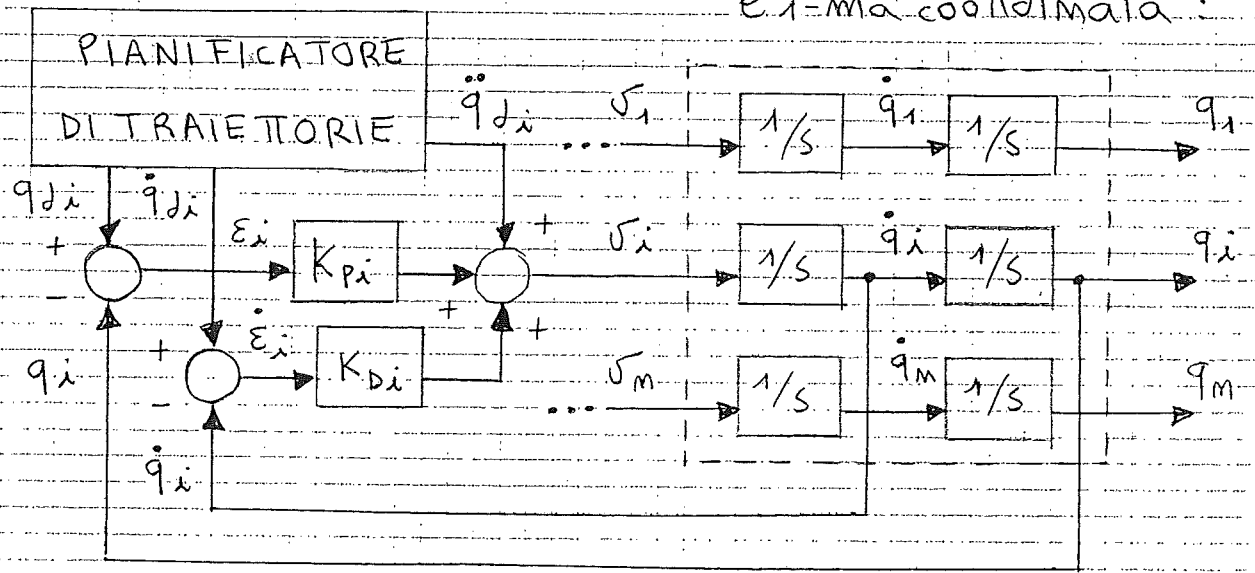 PIANIFICATORE
DI TRAIETTORIE
q̈di ... v1 1/S q̇1 1/S q1
qdi q̇di
+ - εi KPi + + + vi 1/S q̇i 1/S qi
qi + - ε̇i KDi ... vn 1/S q̇n 1/S qn
q̇i